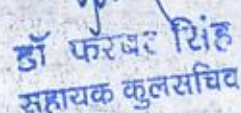 डॉ फरवट सिंह
सहायक कुलसचिव